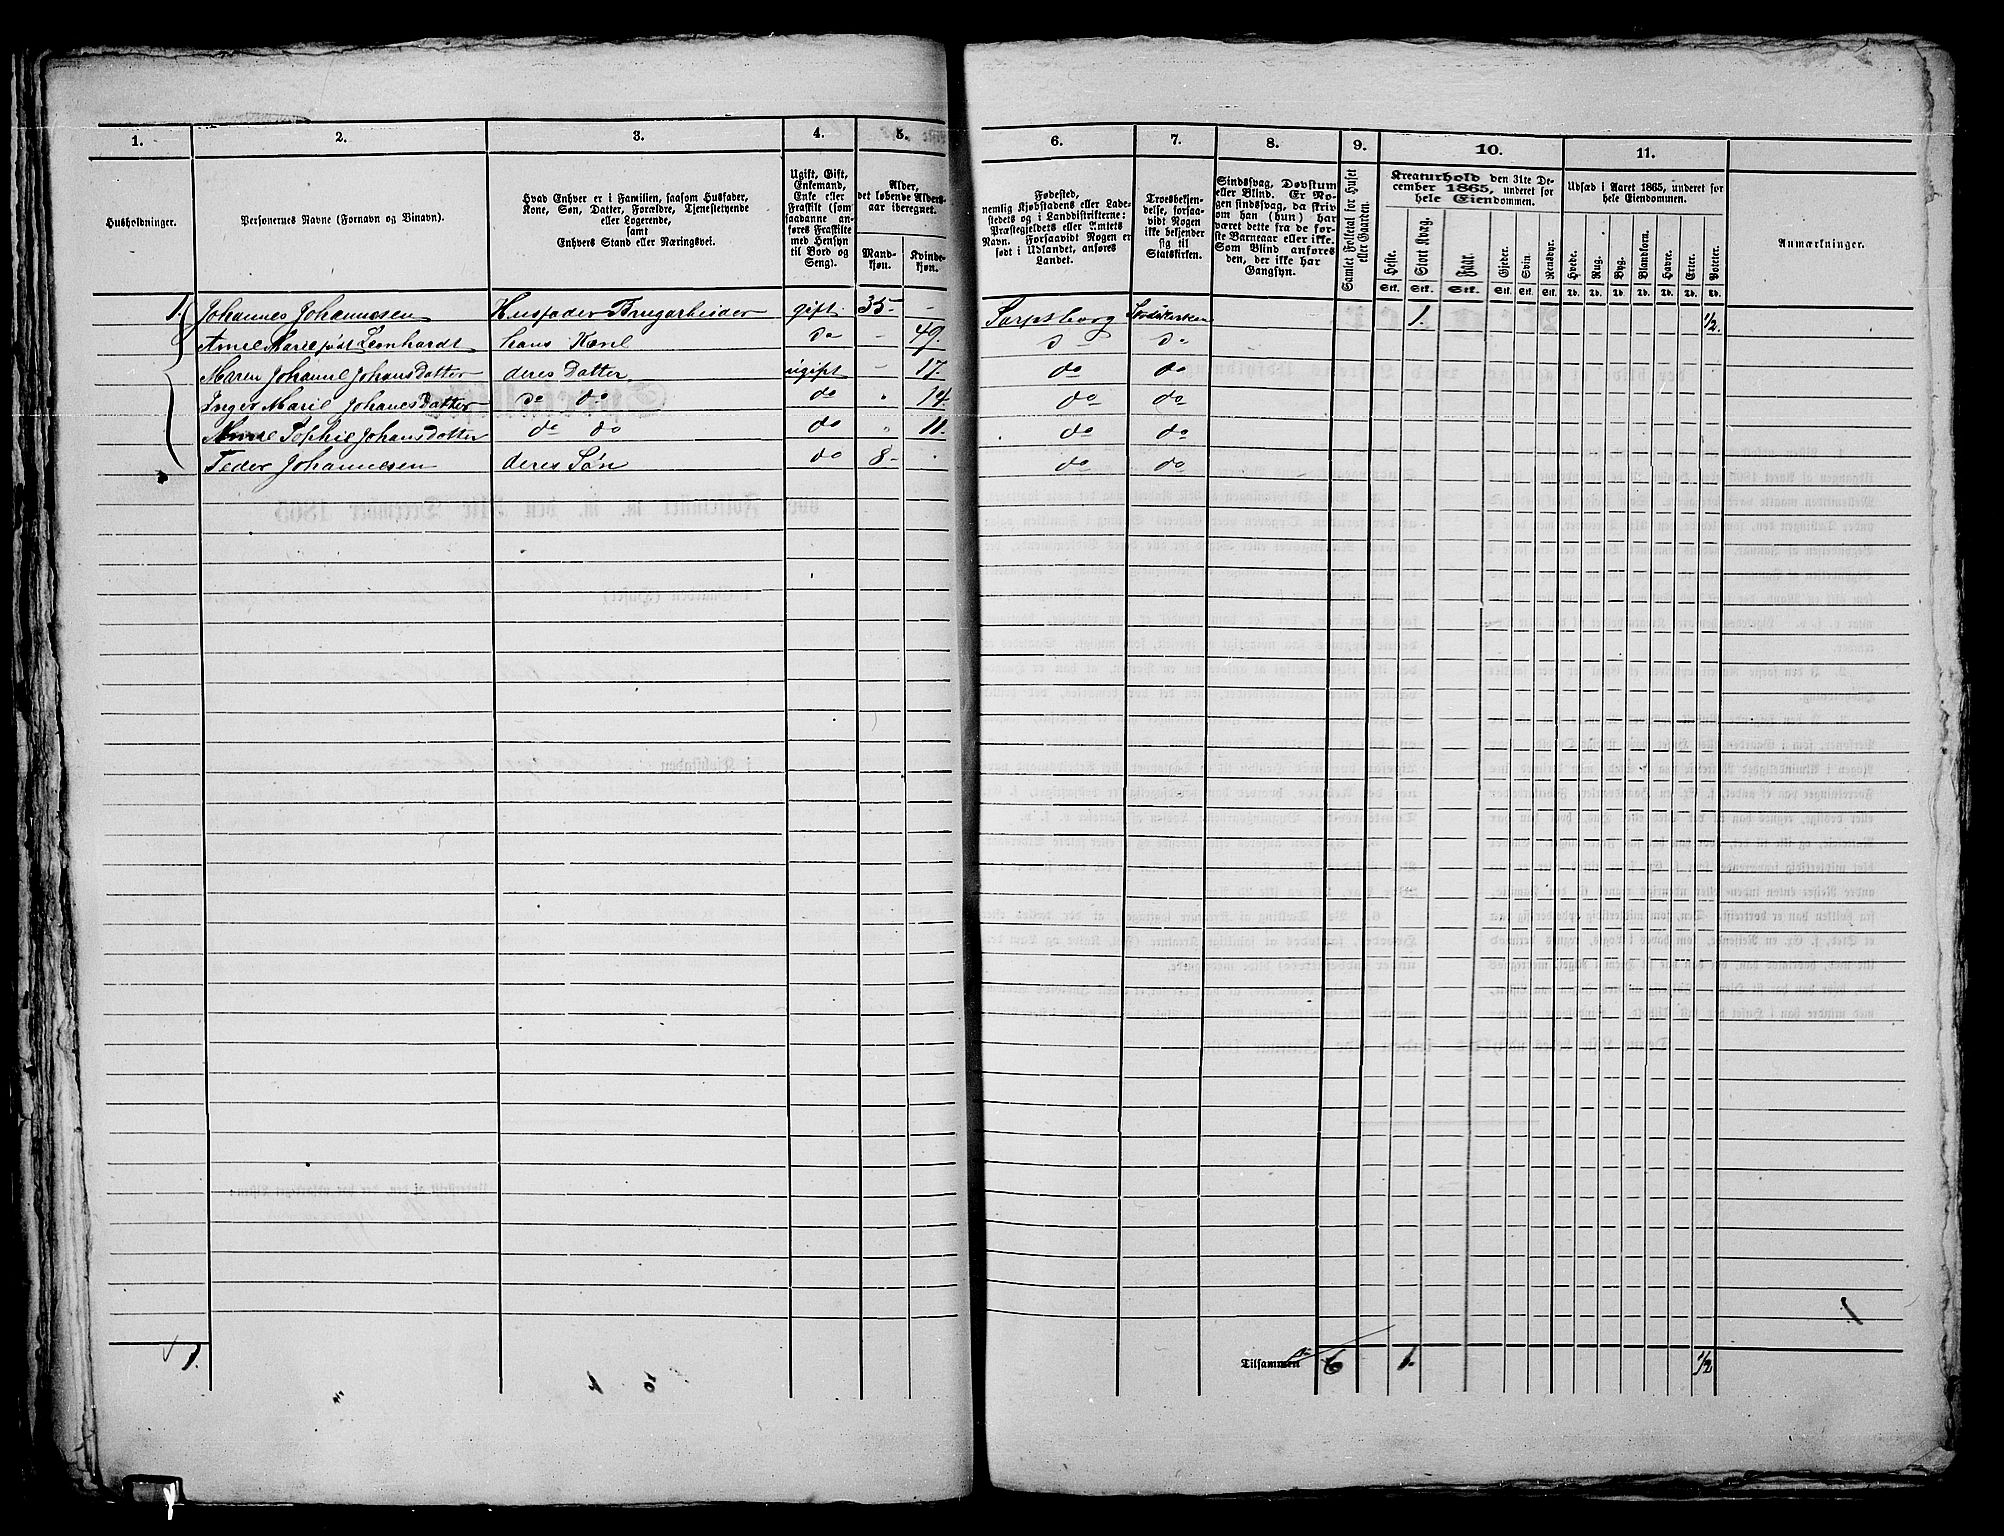 1. 2. 3. 4. 5. 6. 7. 8. 9. 10. 11.
Husholdninger.
Personernes Navne (Fornavn og Binavn).
Hvad Enhver er i Familien, saasom Husfader,
Kone, Søn, Datter, Forældre, Tjenestetyende
eller Logerende,
samt
Enhvers Stand eller Næringsvei.
Ugift, Gift,
Enkemand,
Enke eller
Fraskilt (som
saadanne an-
føres Fraskilte
med Hensyn
til Bord og
Seng).
Alder,
det løbende Alders-
aar iberegnet.
Mand-
kjøn.
Kvinde-
kjøn.
Fødested,
nemlig Kjøbstadens eller Lade-
stedets og i Landdistrikterne:
Præstegjeldets eller Amtets
Navn. Forsaavidt Nogen er
født i Udlandet, anføres
Landet.
Troesbekjen-
delse, forsaa-
vidt Nogen
ikke bekjender
sig til
Statskirken.
Sindssvag, Døvstum
eller Blind. Er No-
gen sindssvag, da skriv
om han (hun) har
været dette fra de før-
ste Barneaar eller ikke.
Som Blind anføres
den, der ikke har
Gangsyn.
Samlet Folketal for Huset
eller Gaarden.
Kreaturhold den 31te De-
cember 1865, underet for
hele Eiendommen.
Heste.
Stort Kvæg.
Faar.
Gjeder.
Svin.
Rensdyr.
Stk. Stk. Stk. Stk. Stk. Stk.
Udsæd i Aaret 1865, underet for
hele Eiendommen.
Hvede.
Rug.
Byg.
Blandkorn.
Havre.
Erter.
Poteter.
Td. Td. Td. Td. Td. Td. Td.
Anmærkninger.
1. Johannes Johannesen Husfader Brugarbeider gift 35 - Sarpsborg Statskirken 1. 1/2
Anne Marie født Leonhardt hans Kone do - 49. do do
Maren Johanne Johansdatter deres Datter ugift - 17 do do
Inger Marie Johanesdatter do do do 14 do do
Anne Sophie Johansdatter do do do 11. do do
Peder Johannesen deres Søn do 8- do do
1.
Tilsammen 6 1. 1/2